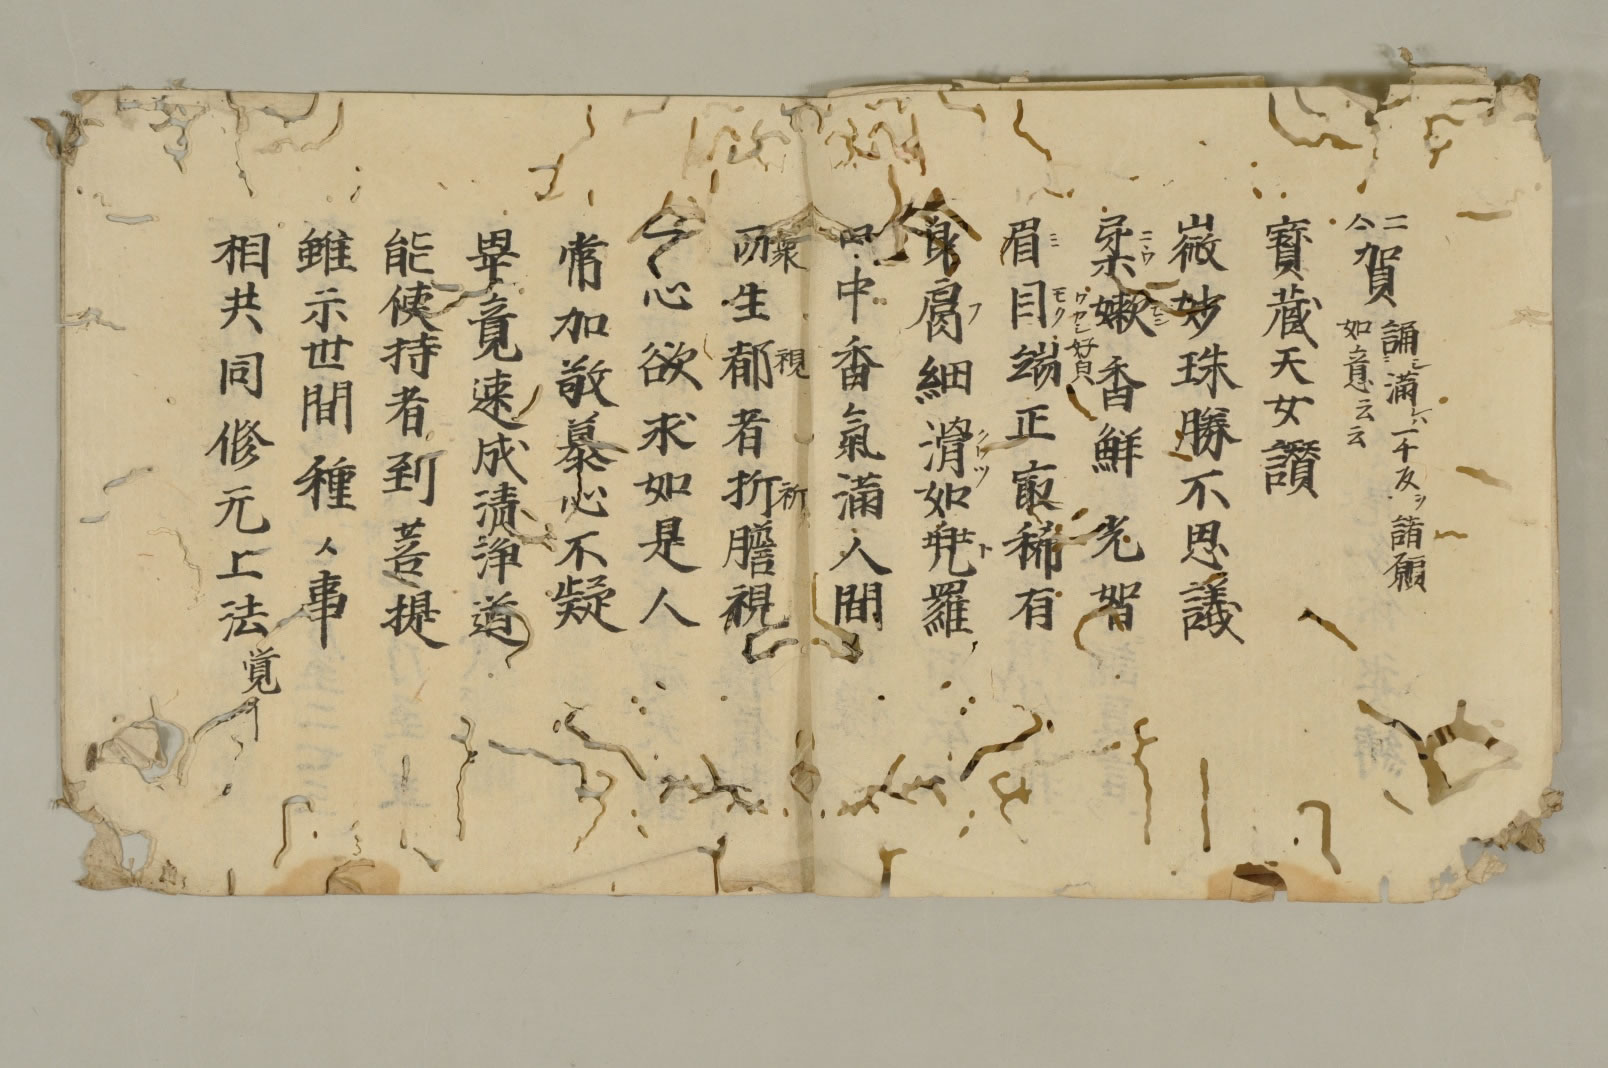 二合賀 誦満一千反諸願
如意云云
寳蔵天女讃
微妙珠勝不思議
柔嫩香鮮光智
眉目端正寂稀有
身膚細滑如兠羅
口中香氣満人間
所生都者折膽視
今心欲求如是人
常加敬慕心不疑
畢竟速成清浄道
能使持者到菩提
雖示世間種々事
相共同修元上法
覚